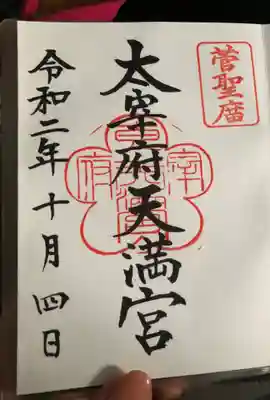 菅聖廟
太宰府天満宮
令和二年十月四日